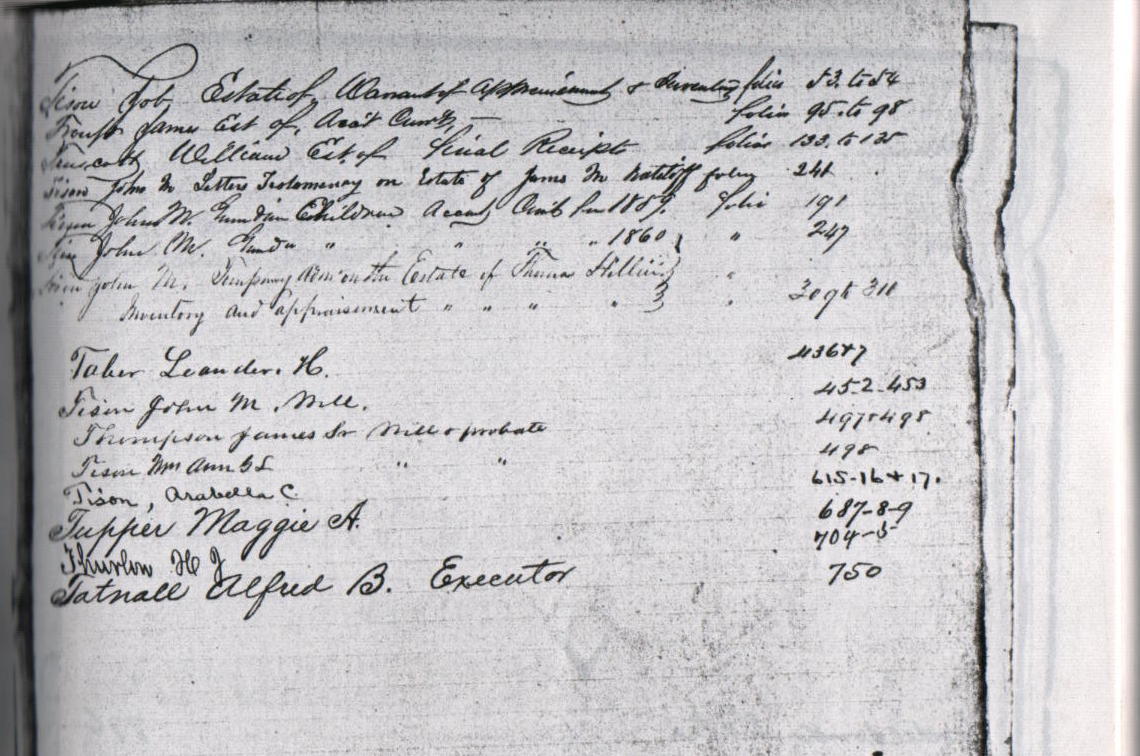 Tison Job, Estate of, Warrant of Appraisement & Inventory folios 53. to 54
Troup James Est of, Acc't Curr't, — folio 95. to 98
William Est. of Final Receipts folios 133. to 135
Tison John M Letters Testamentary on Estate of James M folio 241
Tison John M. Children Account Curt for 1859. folio 191
Tison John M. " " " " 1860 } " 247
Tison John M. Temporary Adm' on the Estate of Thomas } "
Inventory and appraisement " " " " } " 309 & 310
Taber Leander. H. 436+7
Tison John M. Will. 452-453
Thompson James Sr Will & probate 497 & 498
Tison Wm Ann " " 498
Tison, Arabella C. 615-16 + 17.
Tupper Maggie A. 687-8-9
Thurlow H J 704-5
Tatnall Alfred B. Executor 750